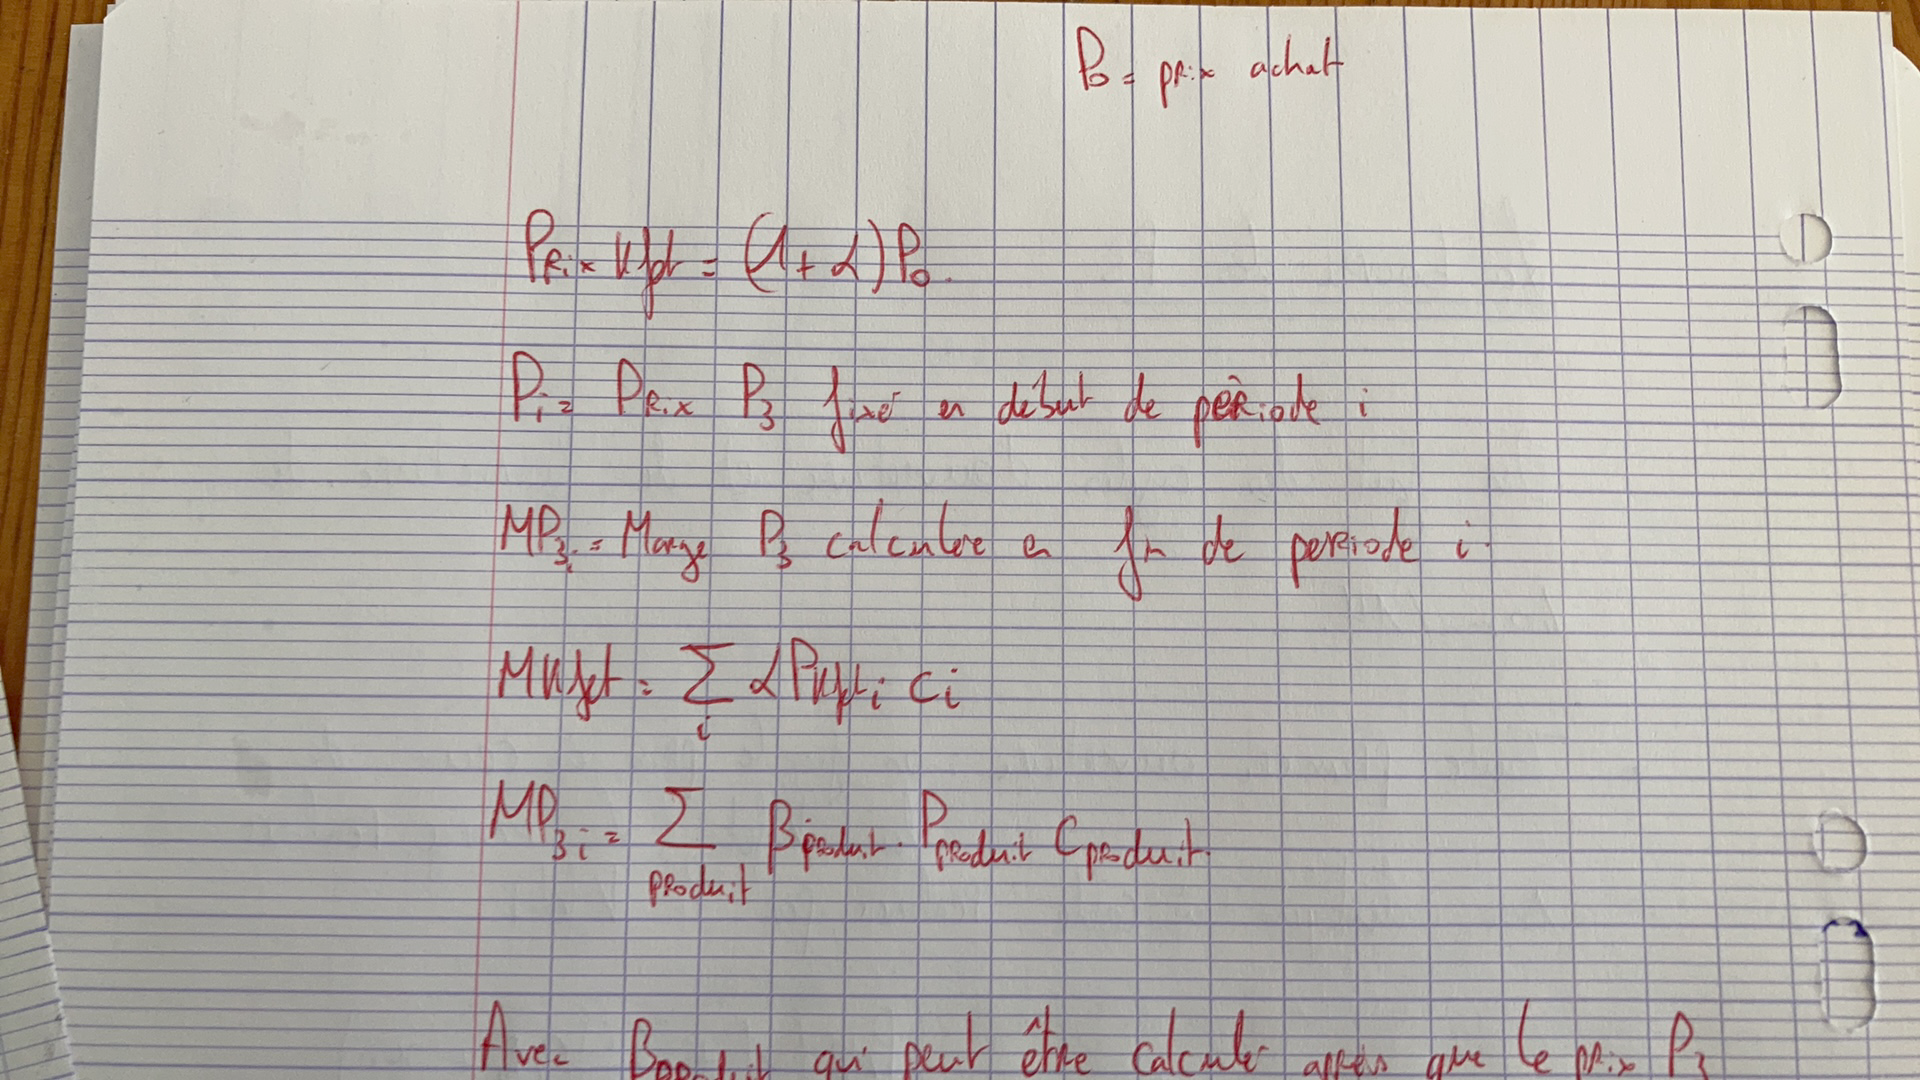 P₀ = prix achat
Prix Kfet = (1+α)P₀.
Pᵢ = Prix P₃ fixé en début de période i
MP₃ᵢ = Marge P₃ calculée en fin de periode i.
MKfet = Σᵢ αPKfetᵢ cᵢ
MP₃ᵢ = Σ βproduit · Pproduit Cproduit.
produit
Avec Bproduit qui peut être calculer après que le prix P₃